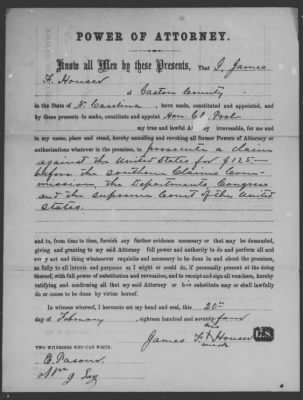 POWER OF ATTORNEY.
Know all Men by these Presents, That I, James
F. Houser
a Gaston County
in the State of N. Carolina, have made, constituted and appointed, and
by these presents to make, constitute and appoint Hon. C. Pool
my true and lawful A y irrevocable, for me and
in my name, place and stead, hereby annulling and revoking all former Powers of Attorney or
authorizations whatever in the premises, to prosecute a claim
against the United States for $125—
before the Southern Claims Com-
mission, the Departments, Congress
and the Supreme Court of the United
States.
and to, from time to time, furnish any further evidence necessary or that may be demanded,
giving and granting to my said Attorney full power and authority to do and perform all and
every act and thing whatsoever requisite and necessary to be done in and about the premises,
as fully to all intents and purposes as I might or could do, if personally present at the doing
thereof, with full power of substitution and revocation, and to receipt and sign all vouchers, hereby
ratifying and confirming all that my said Attorney or his substitute may or shall lawfully
do or cause to be done by virtue hereof.
In witness whereof, I hereunto set my hand and seal, this 20th
day of February, eighteen hundred and seventy-four
his
James F. X Houser L.S.
mark
TWO WITNESSES WHO CAN WRITE.